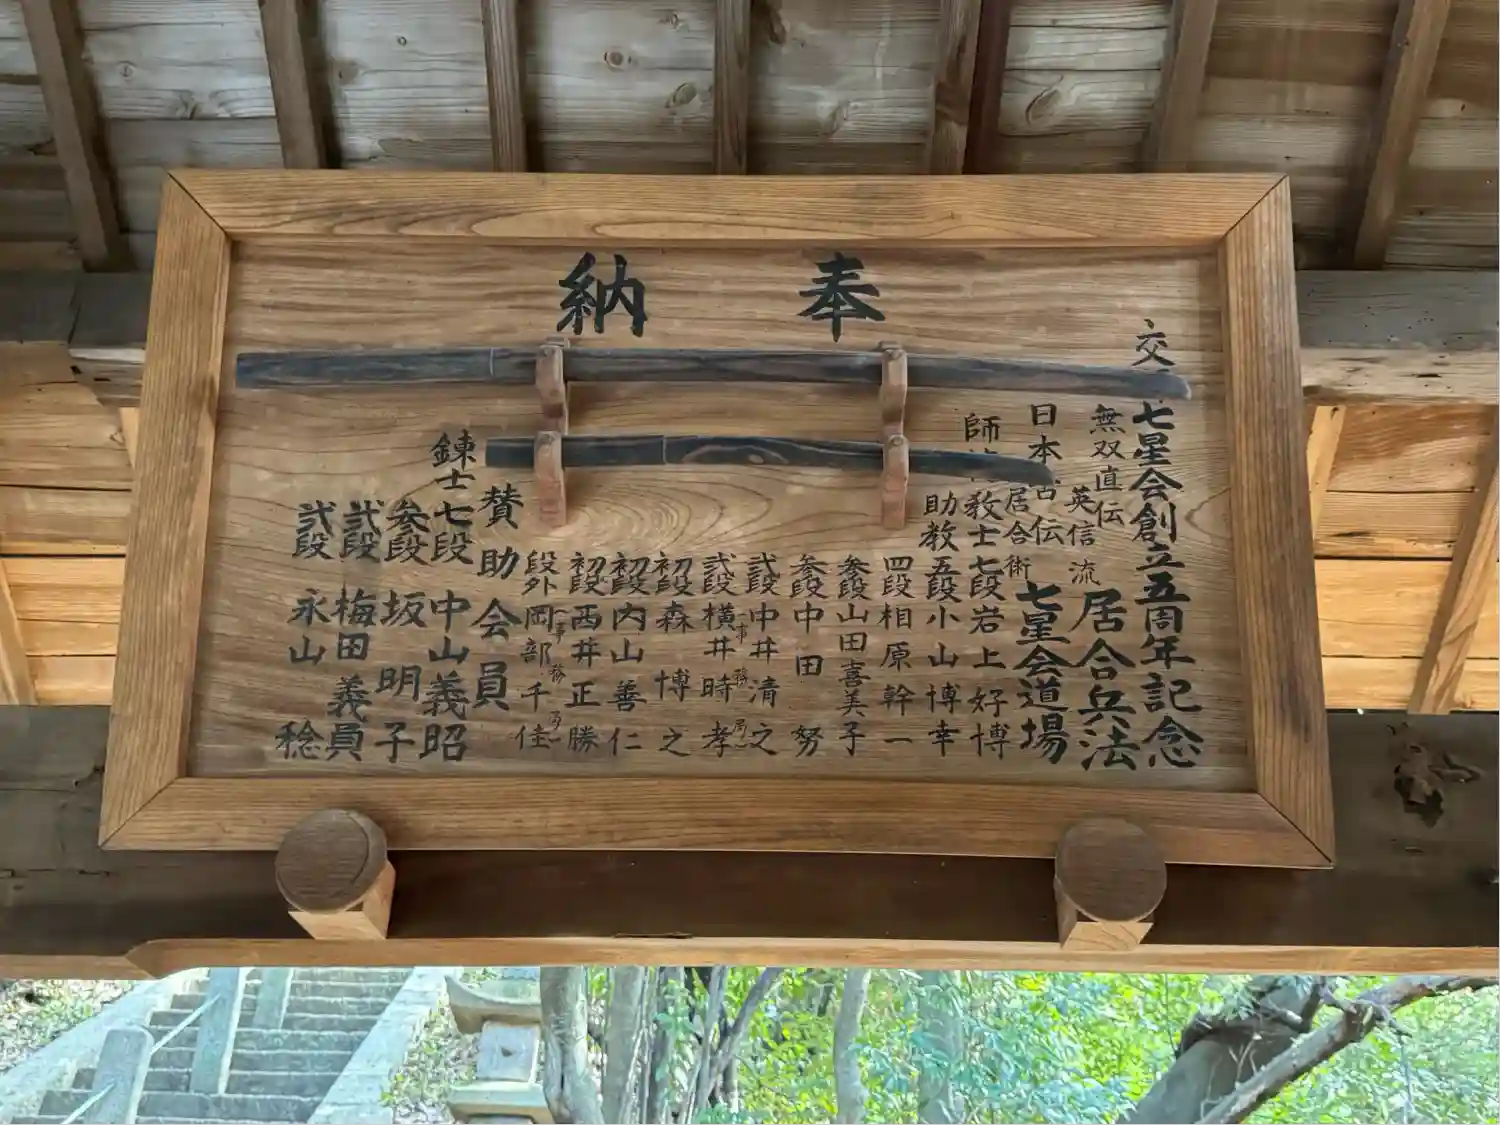 奉納
交
七星会創立五周年記念
無双直伝英信流居合兵法
日本古伝居合術七星会道場
師
教士七段岩上好博
助教五段小山博幸
四段相原幹一
参段山田喜美子
参段中田努
弐段中井清之
弐段横井時孝
初段森博之
初段内山善仁
初段西井正勝
段外岡部千佳
賛助会員
錬士七段中山義昭
参段坂明子
弐段梅田義員
弐段永山稔